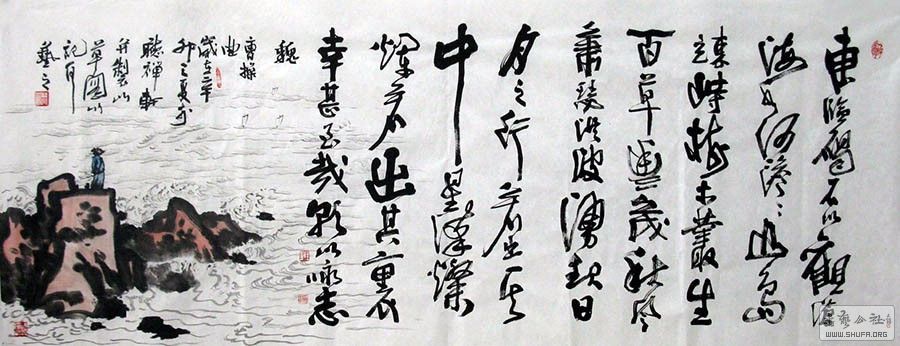 東臨碣石以觀滄
海水何澹澹山島
竦峙樹木叢生
百草豐茂秋風
蕭瑟洪波湧起日
月之行若出其
中星漢燦
爛若出其裏
幸甚至哉歌以詠志
魏
曹操
曲
歲在辛
卯之夏於
聽禪軒
并製
草圖以
記
藝之
WWW.SHUFA.ORG